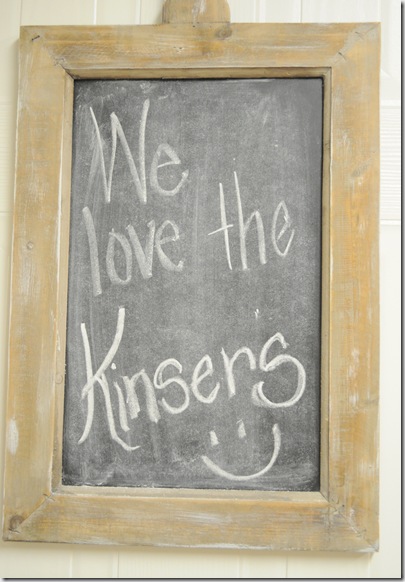 We
love the
Kinser's